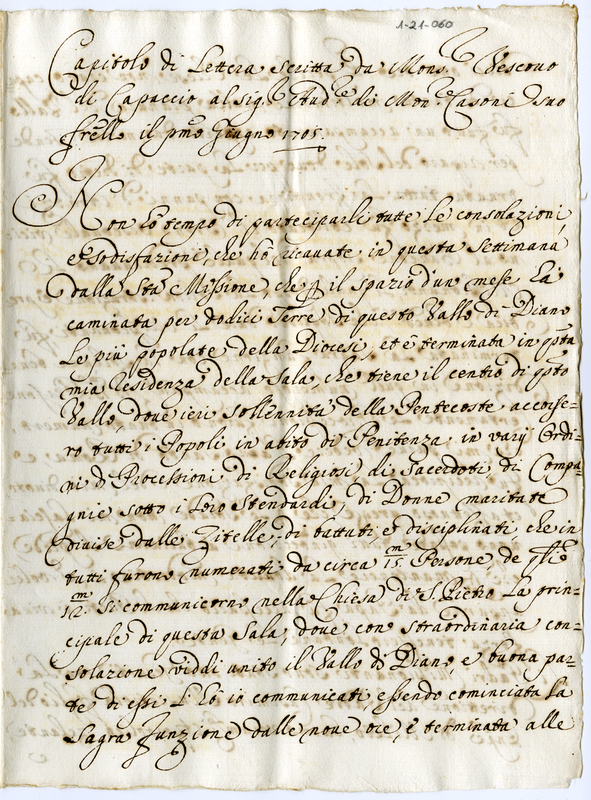 1-21-060
Capitolo di Lettera scritta da Mons.r Vescovo
di Capaccio al sig.r Aud.re di Mon.r Casoni suo
frello il pmo Giugno 1705.
Non hò tempo di parteciparli tutte le consolazioni
et sodisfazioni, che hò ricavate in questa settimana
dalla Sta Missione, che p il spazio d'un mese hà
caminata per dodici Terre di questo Vallo di Diano
le più popolate della Diocesi, et è terminata in qsta
mia Residenza della Sala, che tiene il centro di qsto
Vallo, dove ieri sollennità della Pentecoste accorse-
ro tutti i Popoli in abito di Penitenza in varij Ordi-
ni di Processioni di Religiosi, di Sacerdoti, di Compa-
gnie sotto i loro Stendardi, di Donne maritate
divise dalle Zitelle, di battuti, et disciplinati, che in
tutti furono numerati da circa 15.m Persone, de qli
12.m si communicorno nella Chiesa di S. Pietro la prin-
cipale di questa Sala, dove con straordinaria con-
solazione viddi unito il Vallo di Diano, e buona par-
te di essi l'hò io communicati, essendo cominciata la
Sagra Funzione dalle nove ore, e terminata alle